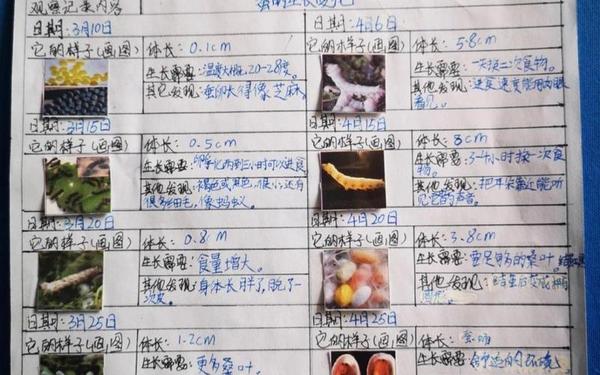 观察记录内容
蚕的生长变化
日期:3月10日
它的样子(画图)
体长: 0.1cm
生长需要:温度大概20-28度。
其它发现:蚕卵长得像芝麻。
日期:3月15日
它的样子(画图)
体长: 0.5cm
生长需要:孵化两到三小时可以进食
其他发现:褐色或黑色,很小还有
很多细毛,像蚂蚁。
日期:3月20日
它的样子(画图)
体长: 0.8cm
生长需要:食量增大。
其他发现:身体长胖了,脱了一
次皮。
日期:3月25日
它的样子(画图)
体长: 1.2cm
生长需要:更多桑叶。
日期: 4月6日
它的样子(画图)
体长: 5-8cm
生长需要:一天换二次食物。
其他发现:进食速度能用肉眼
看见。
日期: 4月15日
它的样子(画图)
体长: 8cm
生长需要:3-4小时换一次食
物。
其他发现:把耳朵靠近能听
见它的声音。
日期: 4月20日
它的样子(画图)
体长: 3-8cm
生长需要:要足够的桑叶。
其他发现:结茧后变成椭
圆形。
日期: 4月25日
它的样子(画图)
体长:
生长需要:舒适的环境